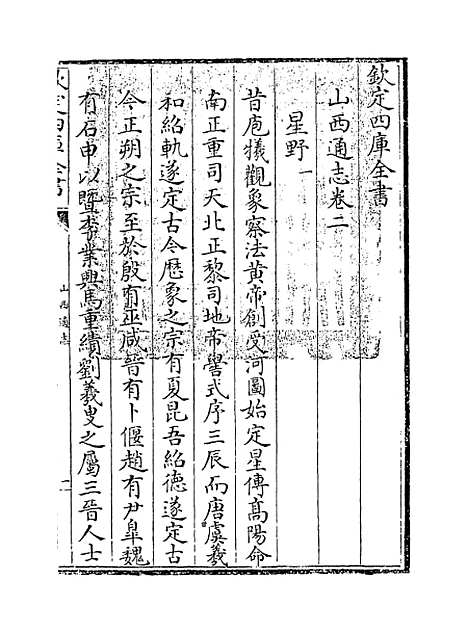 欽定四庫全書
山西通志卷二
星野一
昔庖犧觀象察法黄帝創受河圖始定星傳高陽命
南正重司天北正黎司地帝嚳式序三辰而唐虞羲
和紹軌遂定古今厯象之宗有夏昆吾紹德遂定古
今正朔之宗至於殷有巫咸晉有卜偃趙有尹臯魏
有石申以暨李業興馬重績劉羲叟之屬三晉人士
欽定四庫全書
山西通志